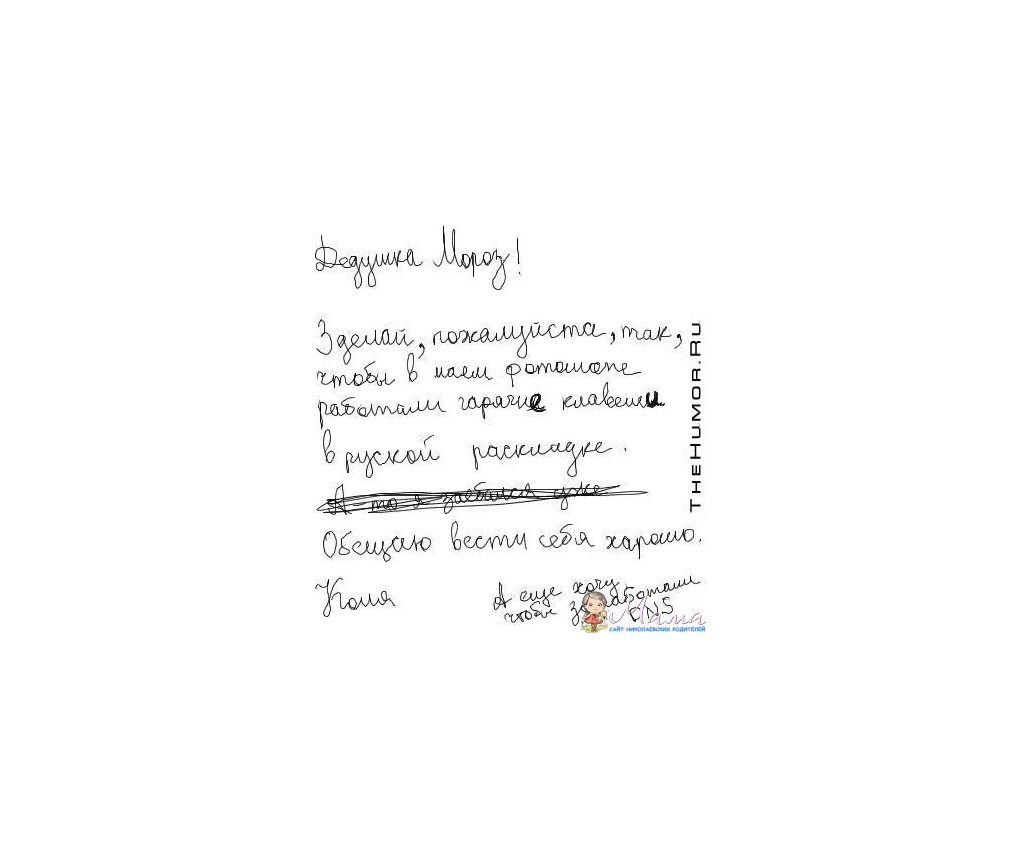 Дедушка Мороз!
Зделай, пожалуйста, так,
чтобы в маем фотошопе
работали гарячие клавеши
в руской раскладке.
А то я заебался уже
Обещаю вести себя харашо.
Коля
А еще хочу,
чтобы заработали
DNS
THEHUMOR.RU
Мама
САЙТ НИКОЛАЕВСКИХ РОДИТЕЛЕЙ